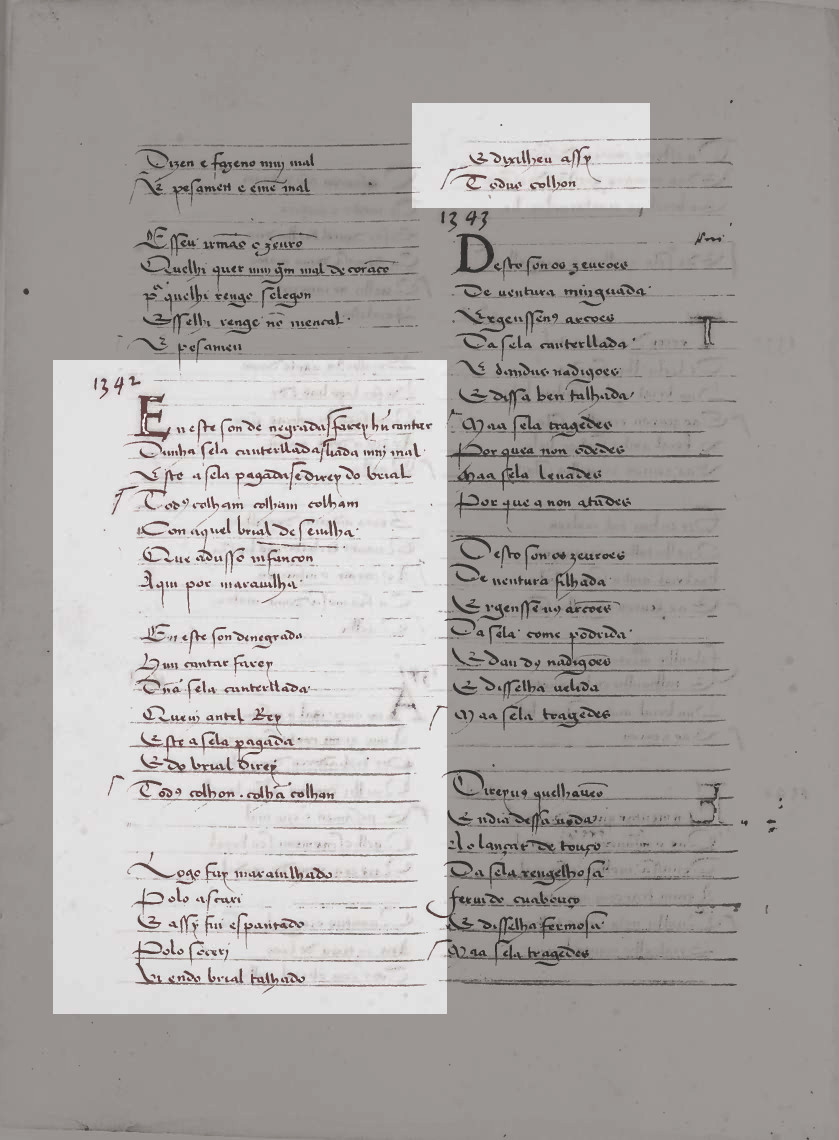 Dizen e fazeno muj mal
E pesamen e eme mal
Esseu irmão e zeuro
Quelhi quer muj grm mal de coraçõ
pa quelhi rengẽ selegon
Esselhi rengẽ nẽ mencal
E pesamen
1342
En este son de negrada farey hũ cantar
Dunha sela canterllada liada muj mal
Este a sela pagada e direy do brial
Todꝯ colham colham colham
Con aquel brial de seuilha
Que adusso infançon
Aqui por marauilha
En este son denegrada
Hun cantar farey
Dũa sela canterllada
Quem antel Rey
Este a sela pagada
E do brial direy
Todꝯ colhon . colhã colhon
Logo fuy marauilhado
Polo ascari
E assy fui espantado
Polo soceri
Vi endo brial talhado
E dixilheu assy
Todus colhon
1343
Desto son os zeuroes
De uentura minguada
Ergenssenꝯ arçoes
Da sela canterllada
E dandus nadigoes
E dissa ben talhada
Maa sela tragedes
Por quea non odedes
Maa sela leuades
Por que a non atades
Desto son os zeuroes
De uentura filhada
Ergenssẽ uꝯ arçoes
Da sela come podrida
E dan dꝯ nadigoes
E disselha uelida
Maa sela tragedes
Direyuꝯ quelhaueo
E ndia dessa uoda
Ao lançar de touço
Da sela rengelhosa
feruido cuabouço
E disselha fermosa
Maa sela tragedes